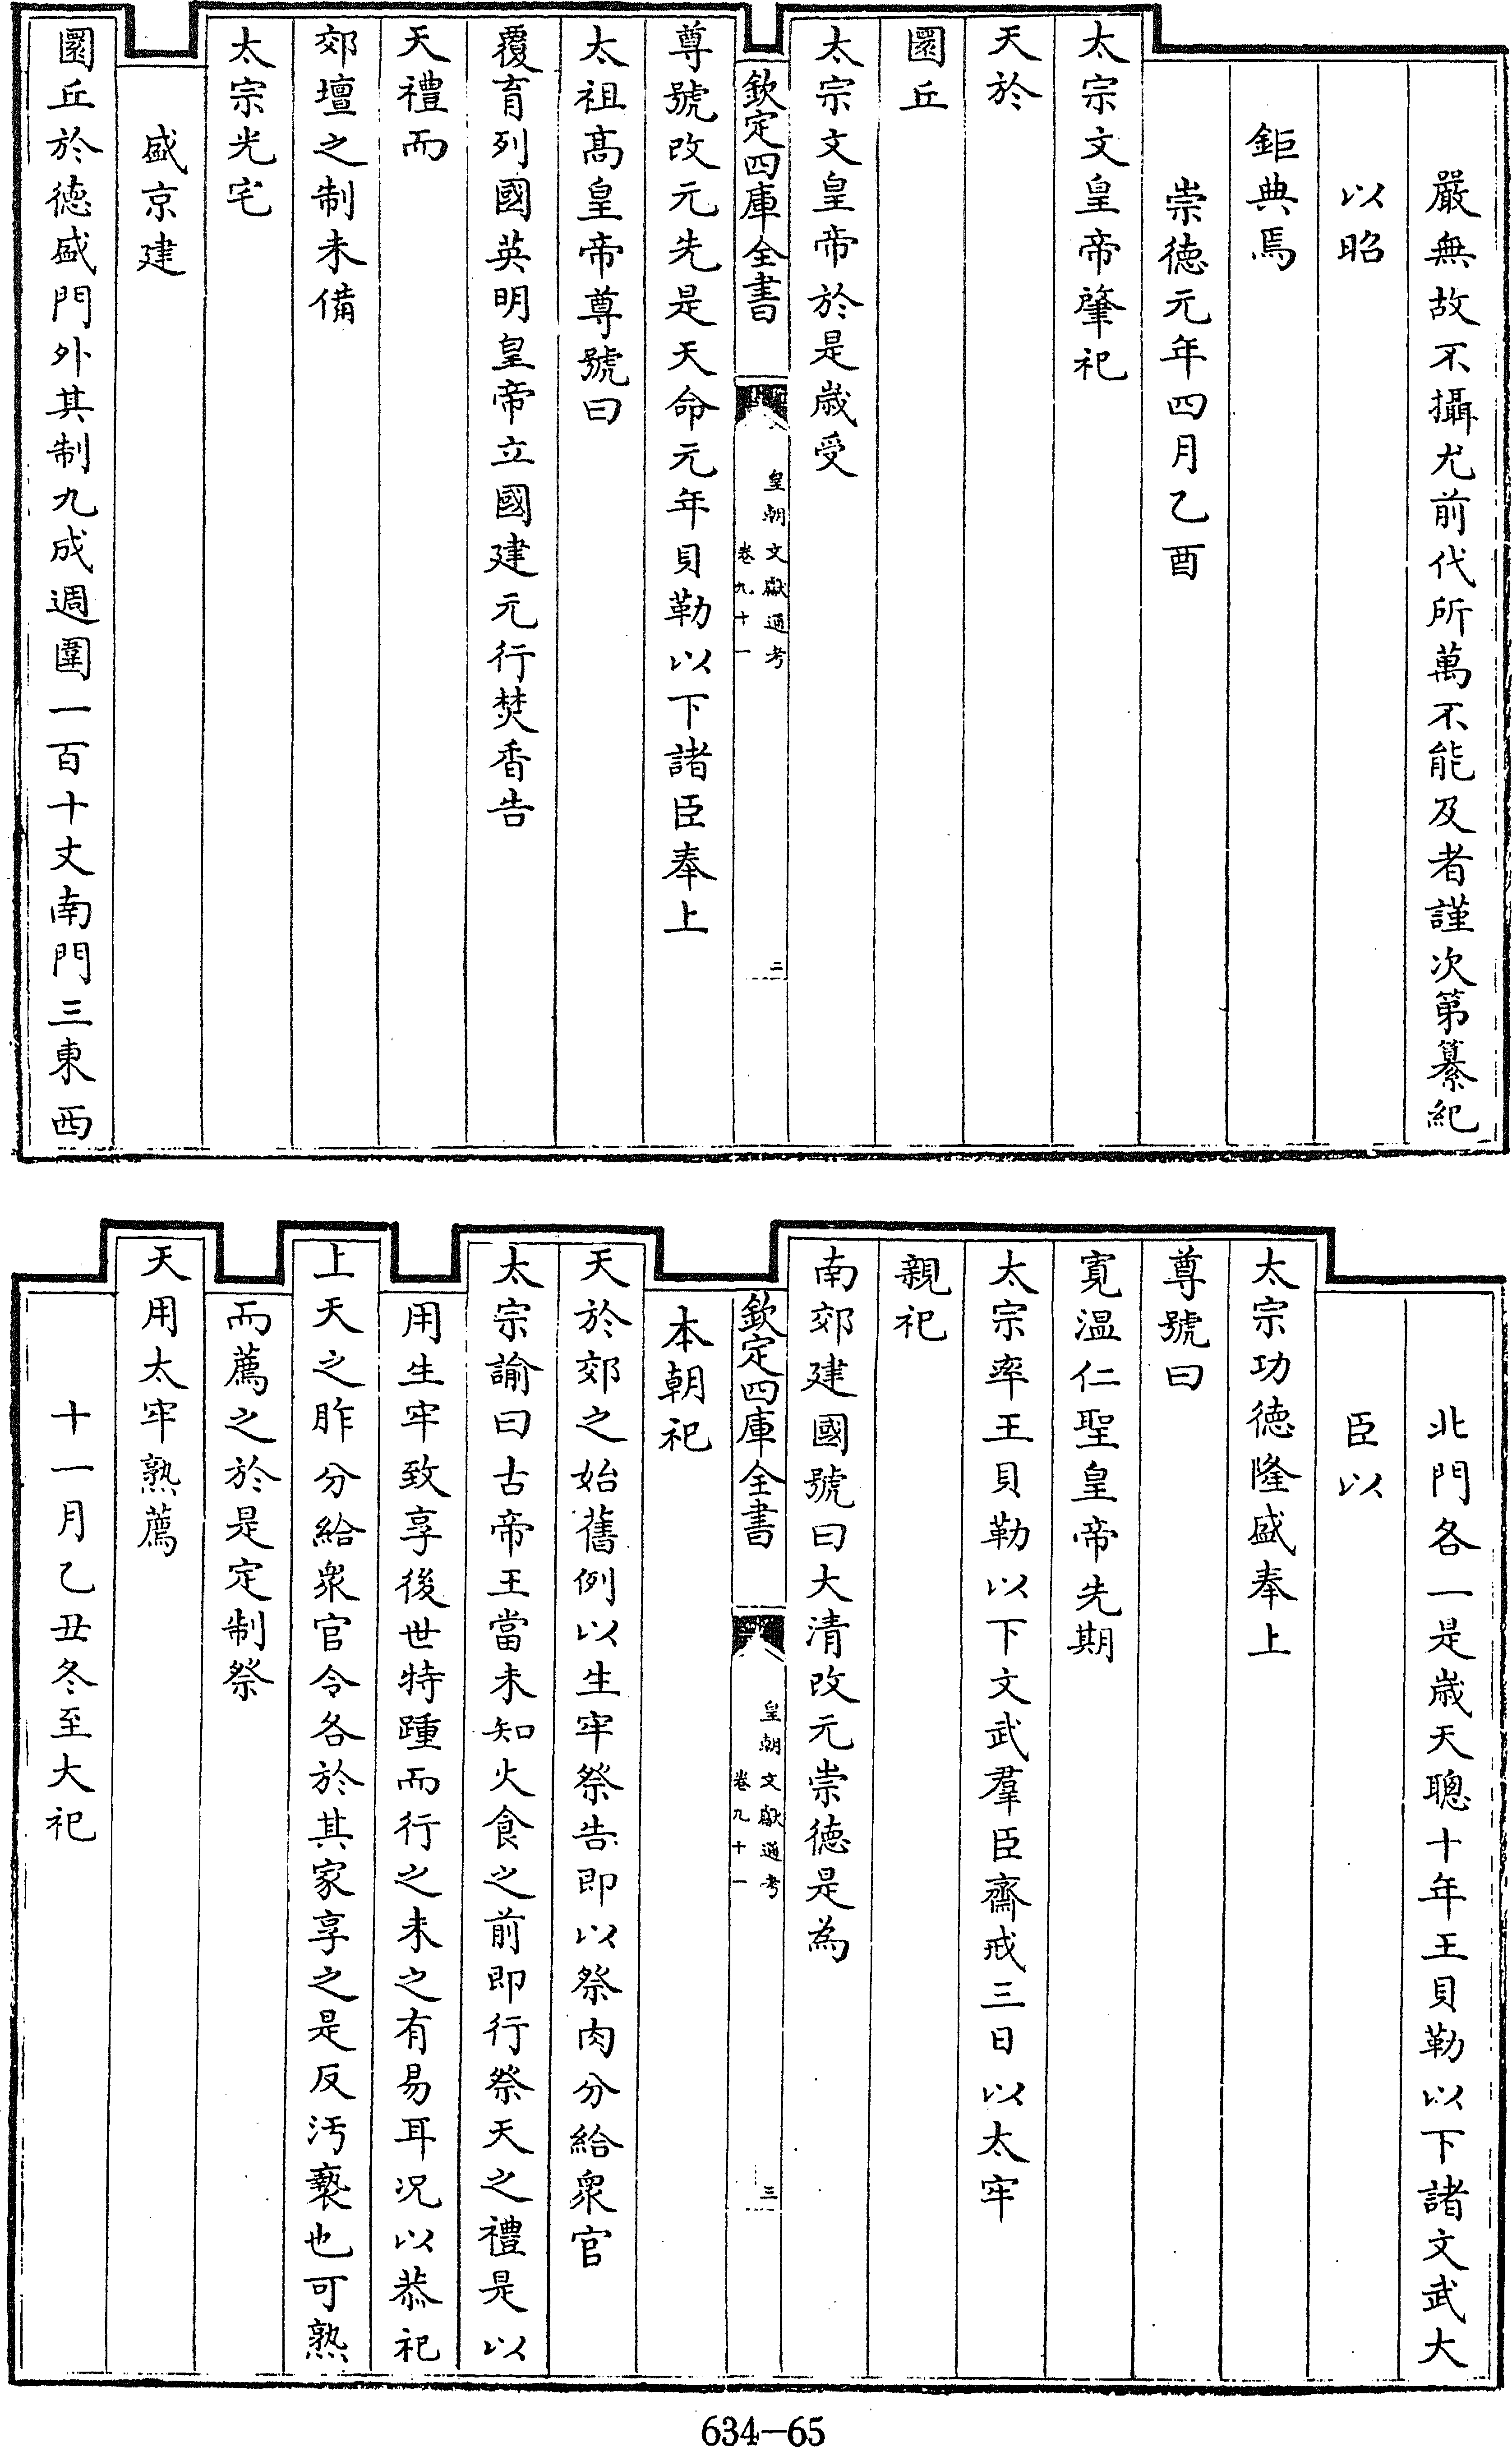 嚴無故不攝尤前代所萬不能及者謹次第纂紀
以昭
鉅典焉
崇德元年四月乙酉
太宗文皇帝肇祀
天於
圜丘
太宗文皇帝於是歲受
欽定四庫全書
皇朝文獻通考
卷九十一
二
尊號改元先是天命元年貝勒以下諸臣奉上
太祖高皇帝尊號曰
覆育列國英明皇帝立國建元行焚香告
天禮而
郊壇之制未備
太宗光宅
盛京建
圜丘於德盛門外其制九成週圍一百十丈南門三東西
北門各一是歲天聰十年王貝勒以下諸文武大
臣以
太宗功德隆盛奉上
尊號曰
寬温仁聖皇帝先期
太宗率王貝勒以下文武羣臣齋戒三日以太牢
親祀
南郊建國號曰大清改元崇德是為
欽定四庫全書
皇朝文獻通考
卷九十一
三
本朝祀
天於郊之始舊例以生牢祭告即以祭肉分給衆官
太宗諭曰古帝王當未知火食之前即行祭天之禮是以
用生牢致享後世特踵而行之未之有易耳况以恭祀
上天之胙分給衆官令各於其家享之是反汚褻也可熟
而薦之於是定制祭
天用太牢熟薦
十一月乙丑冬至大祀
634-65